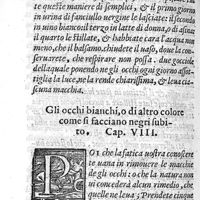 te queste maniere di semplici, & il primo giorno
in urina di fanciullo uergine le lasciate: il secondo
in uino bianco: il terzo in latte di donna, o di asina:
il quarto le stillate, & habbiate cara l'acqua no
meno, che il balsamo, chiudete il uaso, doue la con
seruarete, che respirare non possa. due gocciole
della quale ponendo ne gli occhi ogni giorno assot
tiglia la luce, ne la rende chiarissima, & leua cia
scuna macchia.
Gli occhi bianchi, o di altro colore
come si facciano negri subi-
to, Cap. VIII.
POI che la fatica nostra conoscere
te uana in rimouere le macchie
de gli occhi: o che la natura non
ui concederà alcun rimedio, che
quelle ne leua; Prendete cinque